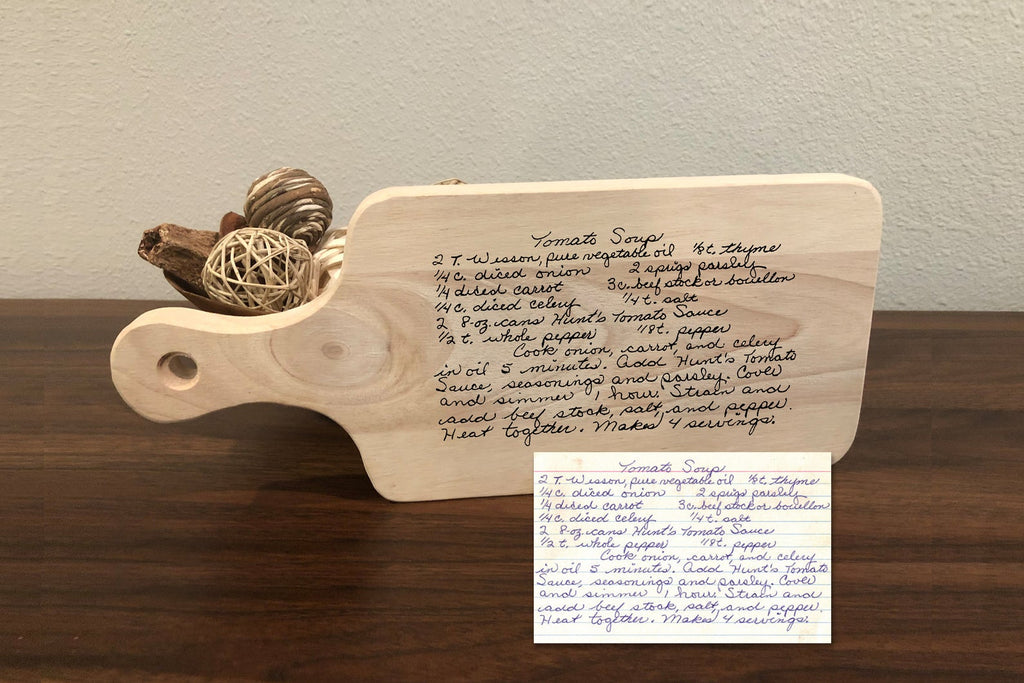 Tomato Soup
2 T. Wesson, pure vegetable oil 1/8 t. thyme
1/4 c. diced onion 2 sprigs parsley
1/4 diced carrot 3 c. beef stock or bouillon
1/4 c. diced celery 1/4 t. salt
2 8-oz. cans Hunt's Tomato Sauce
1/2 t. whole pepper 1/8 t. pepper
Cook onion, carrot, and celery
in oil 5 minutes. Add Hunt's Tomato
Sauce, seasonings and parsley. Cover
and simmer 1 hour. Strain and
add beef stock, salt, and pepper.
Heat together. Makes 4 servings.
Tomato Soup
2 T. Wesson, pure vegetable oil 1/8 t. thyme
1/4 c. diced onion 2 sprigs parsley
1/4 diced carrot 3 c. beef stock or bouillon
1/4 c. diced celery 1/4 t. salt
2 8-oz. cans Hunt's Tomato Sauce
1/2 t. whole pepper 1/8 t. pepper
Cook onion, carrot, and celery
in oil 5 minutes. Add Hunt's Tomato
Sauce, seasonings and parsley. Cover
and simmer 1 hour. Strain and
add beef stock, salt, and pepper.
Heat together. Makes 4 servings.